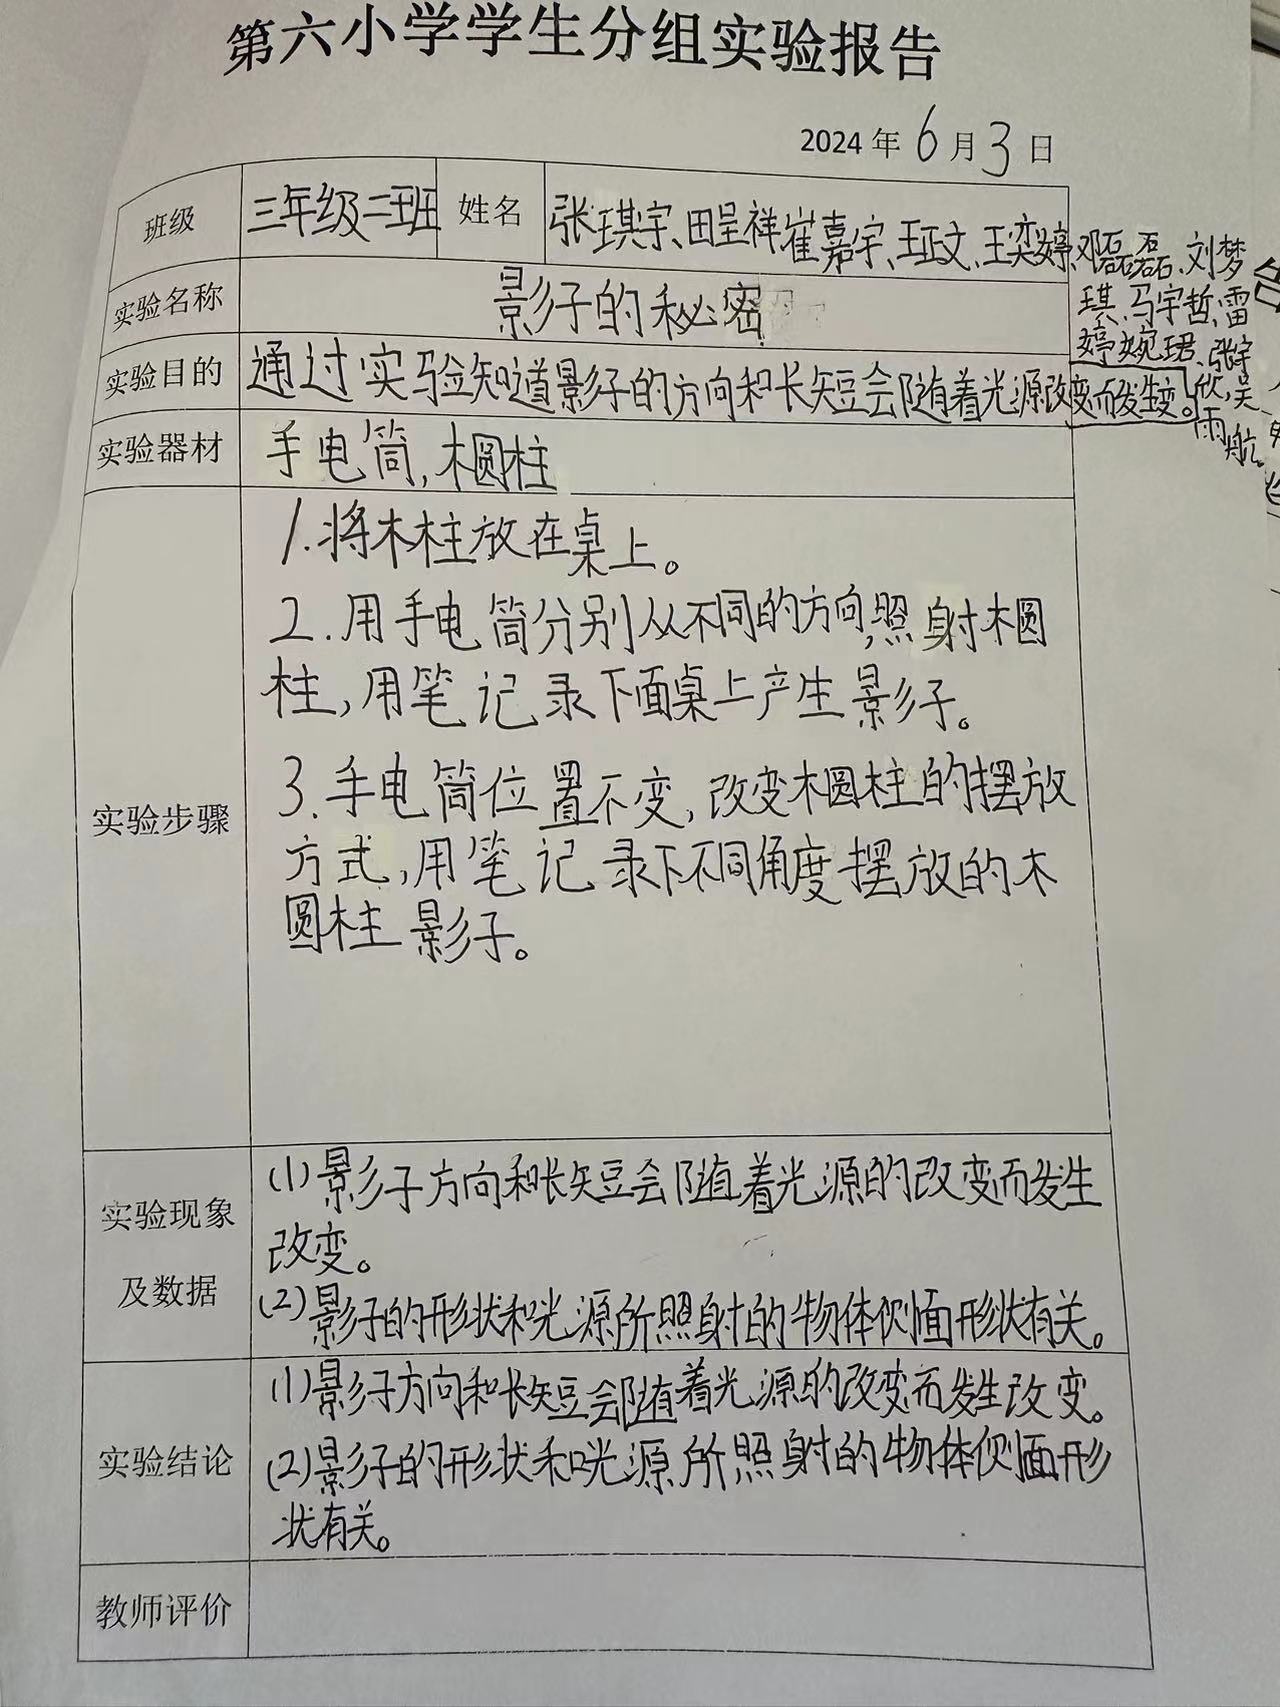 第六小学学生分组实验报告
2024年6月3日
班级 三年级二班 姓名 张琪宇、田呈祥崔嘉宇、王政文、王奕婷、邓磊磊、刘梦
琪、马宇哲、雷
婷婉珺、张宇
欣,吴
雨航。
实验名称 影子的秘密
实验目的 通过实验知道影子的方向和长短会随着光源改变而发生变。
实验器材 手电筒,木圆柱
实验步骤
1.将木柱放在桌上。
2.用手电筒分别从不同的方向,照射木圆
柱,用笔记录下面桌上产生影子。
3.手电筒位置不变,改变木圆柱的摆放
方式,用笔记录下不同角度摆放的木
圆柱影子。
实验现象
及数据
(1)影子方向和长短会随着光源的改变而发生
改变。
(2)影子的形状和光源所照射的物体侧面形状有关。
实验结论
(1)影子方向和长短会随着光源的改变而发生改变。
(2)影子的形状和光源所照射的物体侧面形
状有关。
教师评价
告